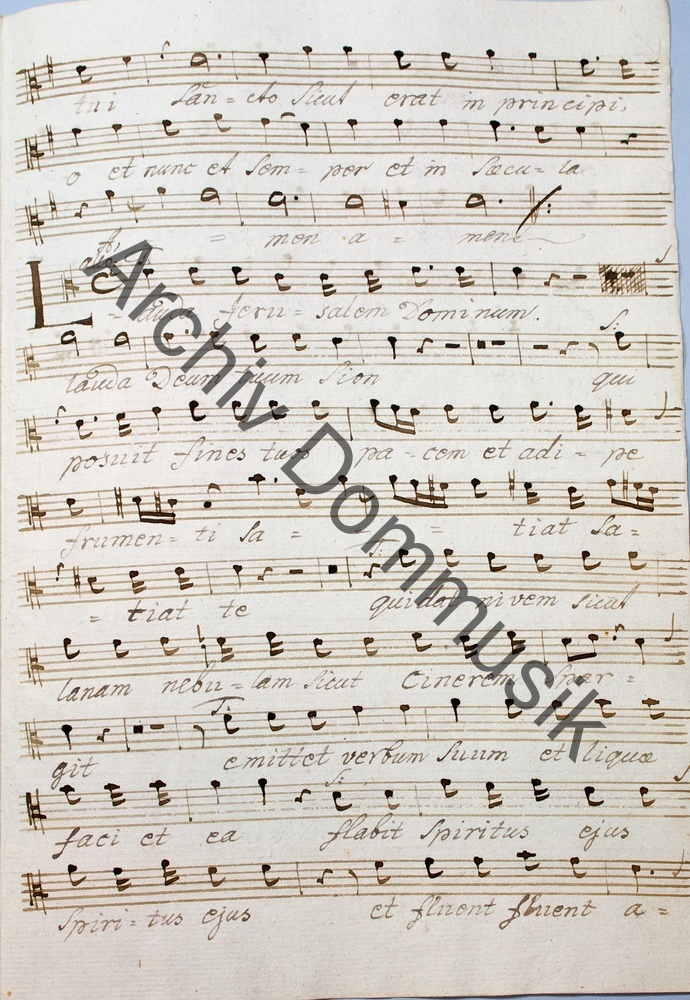 tui San = cto sicut erat in principi,
o et nunc et sem = per et in sæcu = la
A, = men a = men
Lauda Jeru = salem Dominum.
S:
lauda Deum tuum Sion qui
posuit fines tuos pa = cem et adi = pe
frumen = ti sa = = tiat sa =
= tiat te qui dat nivem sicut
lanam nebu = lam sicut cinerem spar =
T:
git emittet verbum suum et liquæ
S:
faci et ea flabit Spiritus ejus
Spiri = tus ejus et fluent fluent a =
Archiv Dommusik